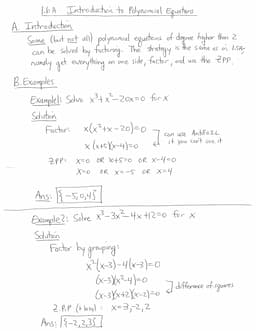 1.6A Introduction to Polynomial Equations
A. Introduction
Some (but not all) polynomial equations of degree higher than 2
can be solved by factoring. The strategy is the same as in 1.5A-
namely get everything on one side, factor, and use the ZPP.
B. Examples
Example 1: Solve x³+x²-20x=0 for x
Solution
Factor: x(x²+x-20)=0
x(x+5)(x-4)=0
can use
it you can't see it
ZPP: x=0 OR x+5=0 OR x-4=0
x=0 OR x=-5 OR x=4
Ans: {-5,0,4}
Example 2: Solve x³-3x²-4x+12=0 for x
Solution
Factor by grouping:
x²(x-3)-4(x-3)=0
(x-3)(x²-4)=0
(x-3)(x+2)(x-2)=0 difference of squares
Z.P.P. : x=3,-2,2
Ans: {-2,2,3}